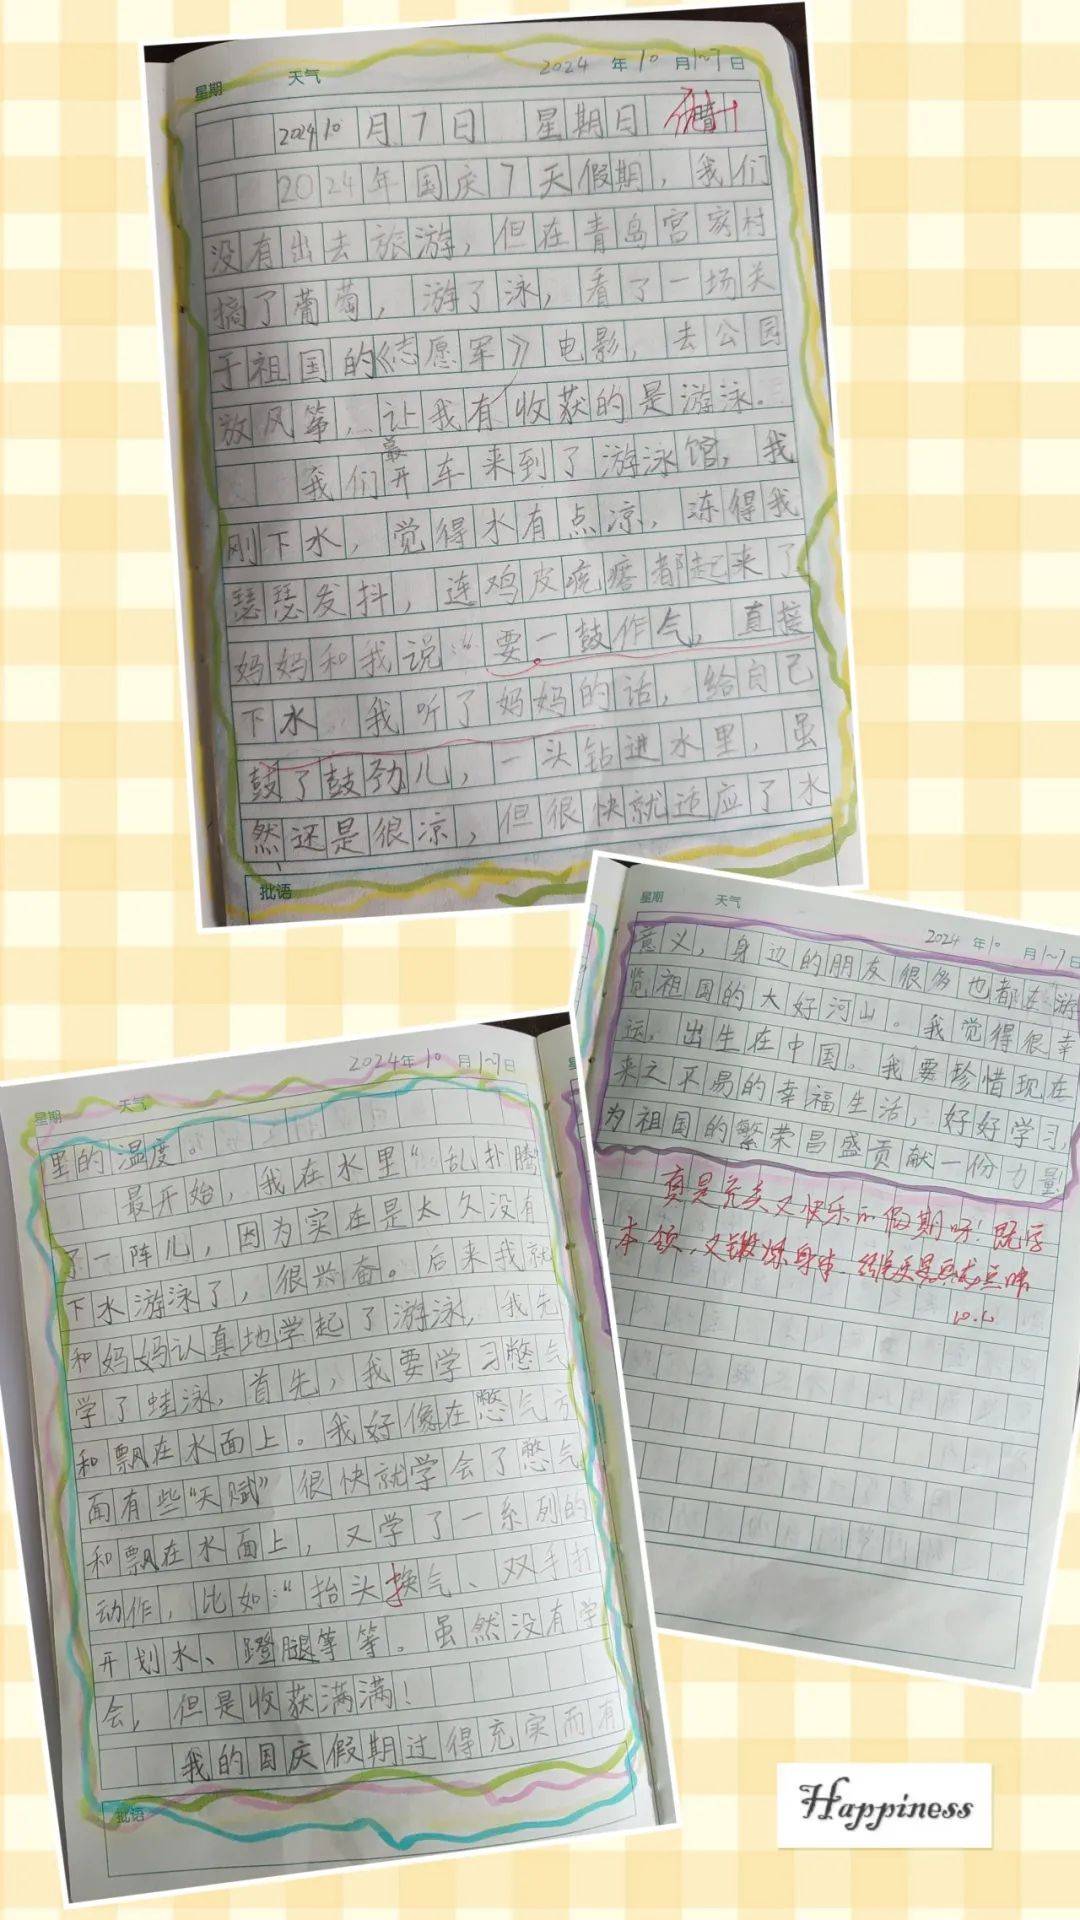 星期 天气 2024 年 10 月 1~7 日
2024 10 月 7 日 星期日 晴
2024年国庆7天假期，我们
没有出去旅游，但在青岛宫家村
摘了葡萄，游了泳，看了一场关
于祖国的《志愿军》电影，去公园
放风筝，让我有收获的是游泳。
最
我们开车来到了游泳馆，我
刚下水，觉得水有点凉，冻得我
瑟瑟发抖，连鸡皮疙瘩都起来了
妈妈和我说：“要一鼓作气，直接
下水 我听了妈妈的话，给自己
鼓了鼓劲儿，一头钻进水里，虽
然还是很凉，但很快就适应了水
批语
星期 天气 2024年 10 月 1~7日
里的温度。
最开始，我在水里“乱扑腾”
了一阵儿，因为实在是太久没有
下水游泳了，很兴奋。后来我就
和妈妈认真地学起了游泳，我先
学了蛙泳，首先，我要学习憋气
和飘在水面上。我好像在憋气方
面有些“天赋” 很快就学会了憋气
和飘在水面上，又学了一系列的
动作，比如：“抬头换气、双手打
开划水、蹬腿等等。虽然没有学
会，但是收获满满！
我的国庆假期过得充实而有
批语
星期 天气 2024 年 10 月 1~7日
意义，身边的朋友很多也都在游
览祖国的大好河山。我觉得很幸
运，出生在中国。我要珍惜现在
来之不易的幸福生活，好好学习，
为祖国的繁荣昌盛贡献一份力量
真是充实又快乐的假期呀！既学
本领，又锻炼身体
Happiness